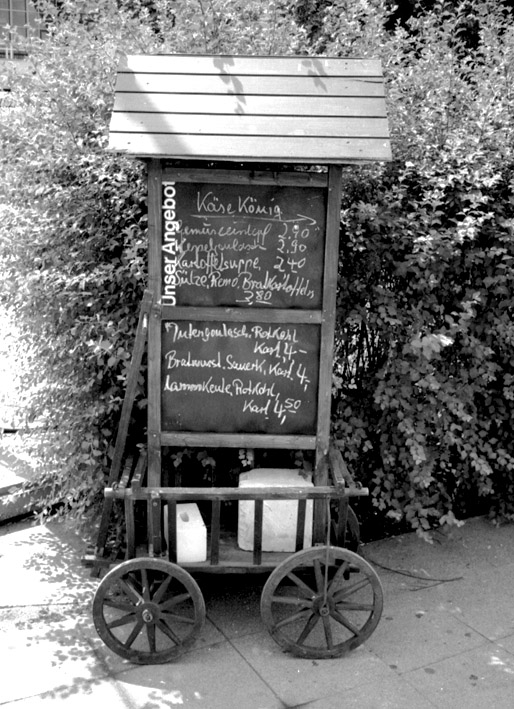 Unser Angebot
Käse König
Gemüseeintopf 2.90
2.90
Kartoffelsuppe, 2.40
Sülze, Remo, Bratkartoffeln
3.80
Putengulasch, Rotkohl
Kart 4,-
Bratwurst, Sauerk, Kart. 4,-
Lammkeule, Rotkohl,
Kart 4,50